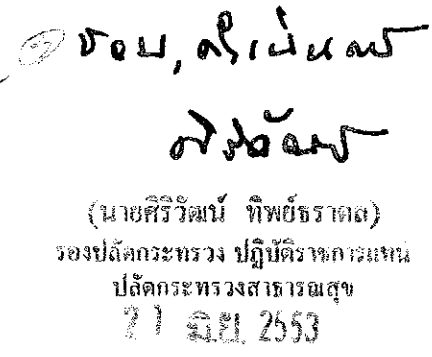 ชอบ, ดำเนินการ
(นายศิริวัฒน์ ทิพย์ธราดล)
รองปลัดกระทรวง ปฏิบัติราชการแทน
ปลัดกระทรวงสาธารณสุข
21 มิ.ย. 2553